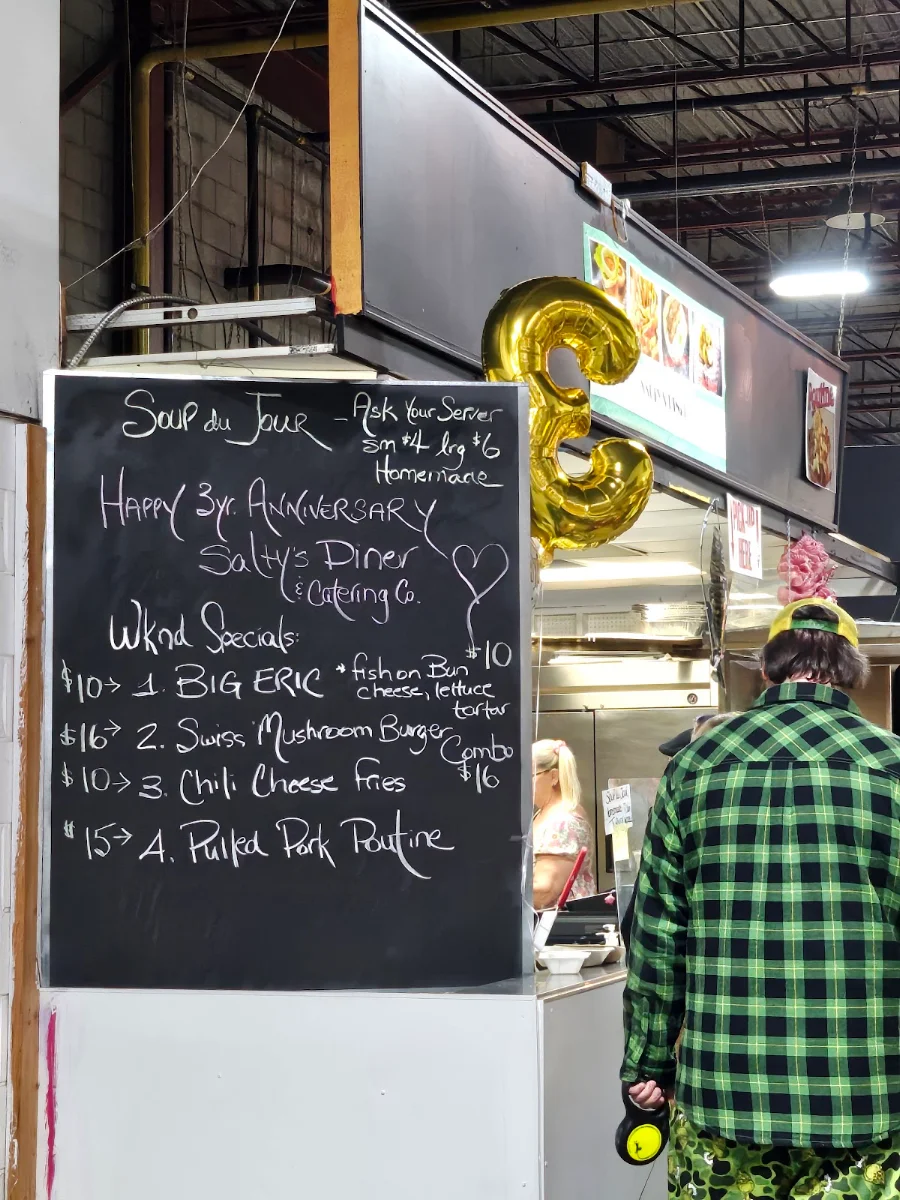 Soup du Jour - Ask Your Server
sm $4 lrg $6
Homemade
Happy 3yr. Anniversary
Salty's Diner
& Catering Co.
Wknd Specials:
$10→ 1. BIG ERIC *fish on Bun $10
cheese, lettuce
tartar
$16→ 2. Swiss Mushroom Burger
Combo
$16
$10→ 3. Chili Cheese Fries
$15→ 4. Pulled Pork Poutine
3
PICK UP
HERE